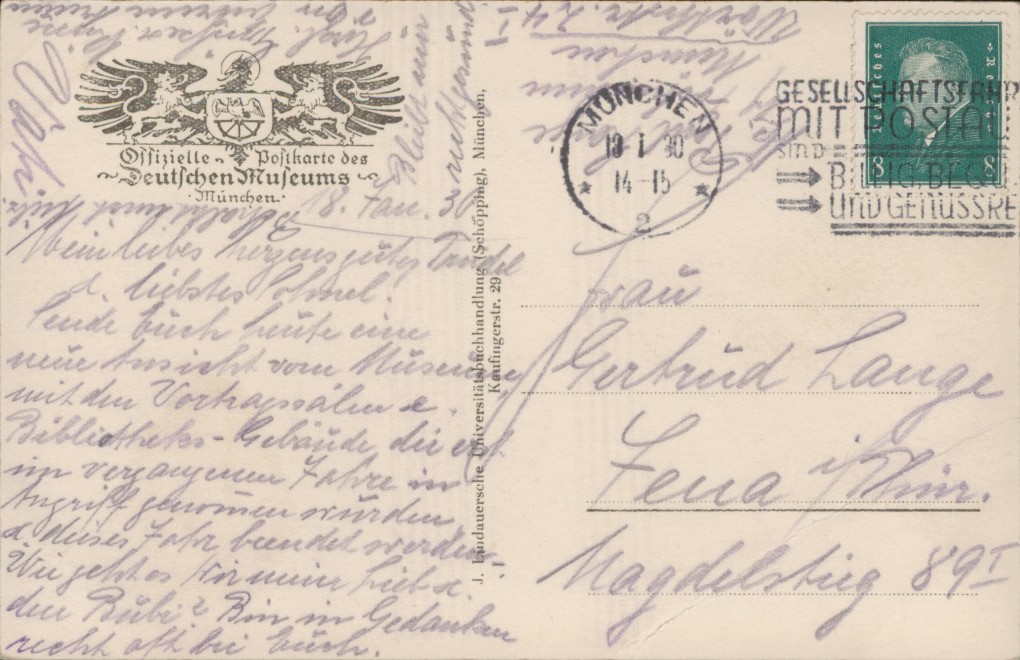 Offizielle Postkarte des
Deutschen Museums
München.
18. Jan. 30
Mein liebes herzensgutes Trudel
d. liebstes
Sende Euch heute eine
neue Ansicht vom Museum
mit den Vortragssälen &
Bibliotheks-Gebäude, die erst
im vergangenen Jahre in
Angriff genommen wurden
& dieses Jahr beendet werden.
Wie geht es Dir mein Lieb &
den Bubi? Bin in Gedanken
recht oft bei Euch.
Bleibt nur
recht gesund
Vati
München
J. Lindauersche Universitätsbuchhandlung (Schöpping), München,
Kaufingerstr. 29
MÜNCHEN
18 I 30
14-15
2
GESELLSCHAFTSFAHR
MIT POSTAU
SIND
BILLIG, BEQU
UND GENUSSRE
Deutsches Reich
8 8
Frau
Gertrud Lange
Jena i/Thür.
Magdelstieg 89 I